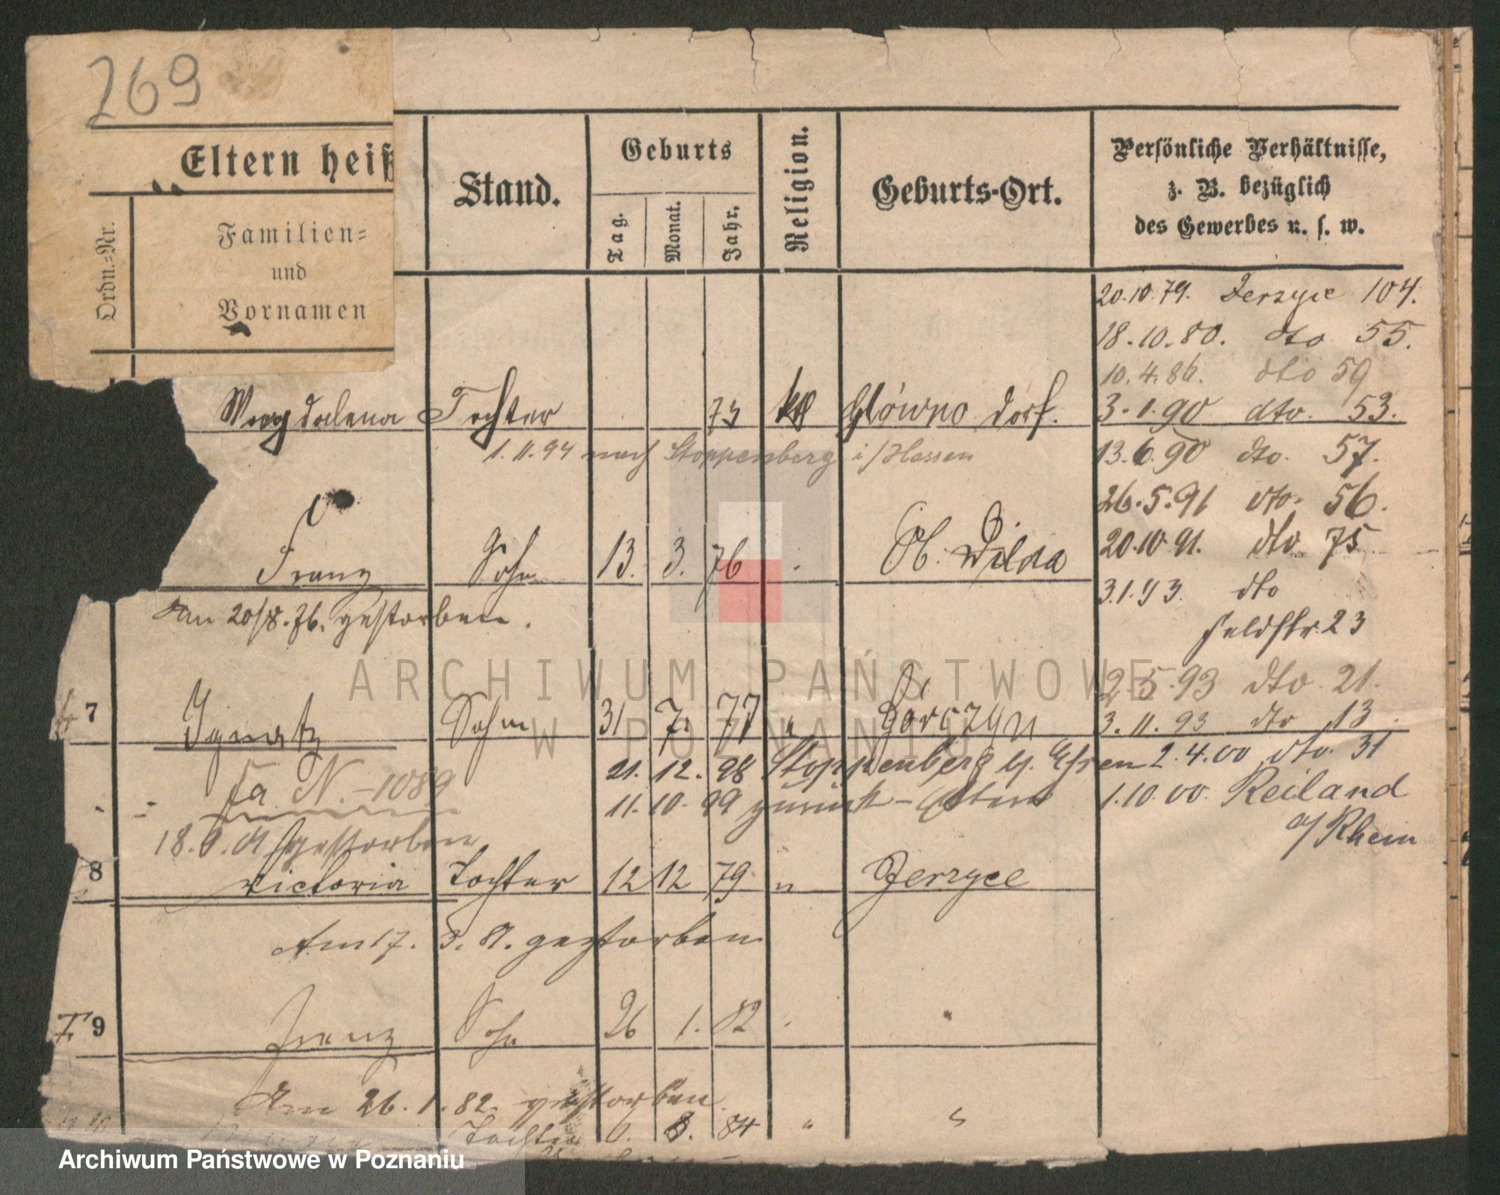 269
Eltern heiß
Ordn.=Nr.
Familien=
und
Vornamen
Stand.
Geburts
Tag.
Monat.
Jahr.
Religion.
Geburts-Ort.
Persönliche Verhältnisse,
z. B. bezüglich
des Gewerbes u. s. w.
20.10.79. Jerzyce 104.
18.10.80. dto 55.
10.4.86. dto 59
Magdalena Tochter 73 Główno Dorf. 3.1.90 dto. 53.
1.11.94 nach Stoppenberg i/Hessen 13.6.90 dto. 57.
26.5.91 dto. 56.
Franz Sohn 13. 3. 76 Ob. Wilda 20.10.91. dto 75
3.1.93. dto
Am 20/8.76. gestorben. Feldstr. 23
2.5.93 dto. 21.
7 Ignatz Sohn 31 7. 77 " Gorczyn 3.11.93 dto 13.
21.12.98 Stoppenberg 2.4.00 dto. 31
fa N.-1089 11.10.99 zurück 1.10.00. Reiland
a/Rhein
18. gestorben
8 Victoria Tochter 12 12 79 " Jerzyce
Am 17. 3. 81. gestorben
9 Franz Sohn 26 1. 82 " "
Am 26.1.82. gestorben
Tochter 6. 8. 84 " "
ARCHIWUM PAŃSTWOWE
W POZNANIU
Archiwum Państwowe w Poznaniu